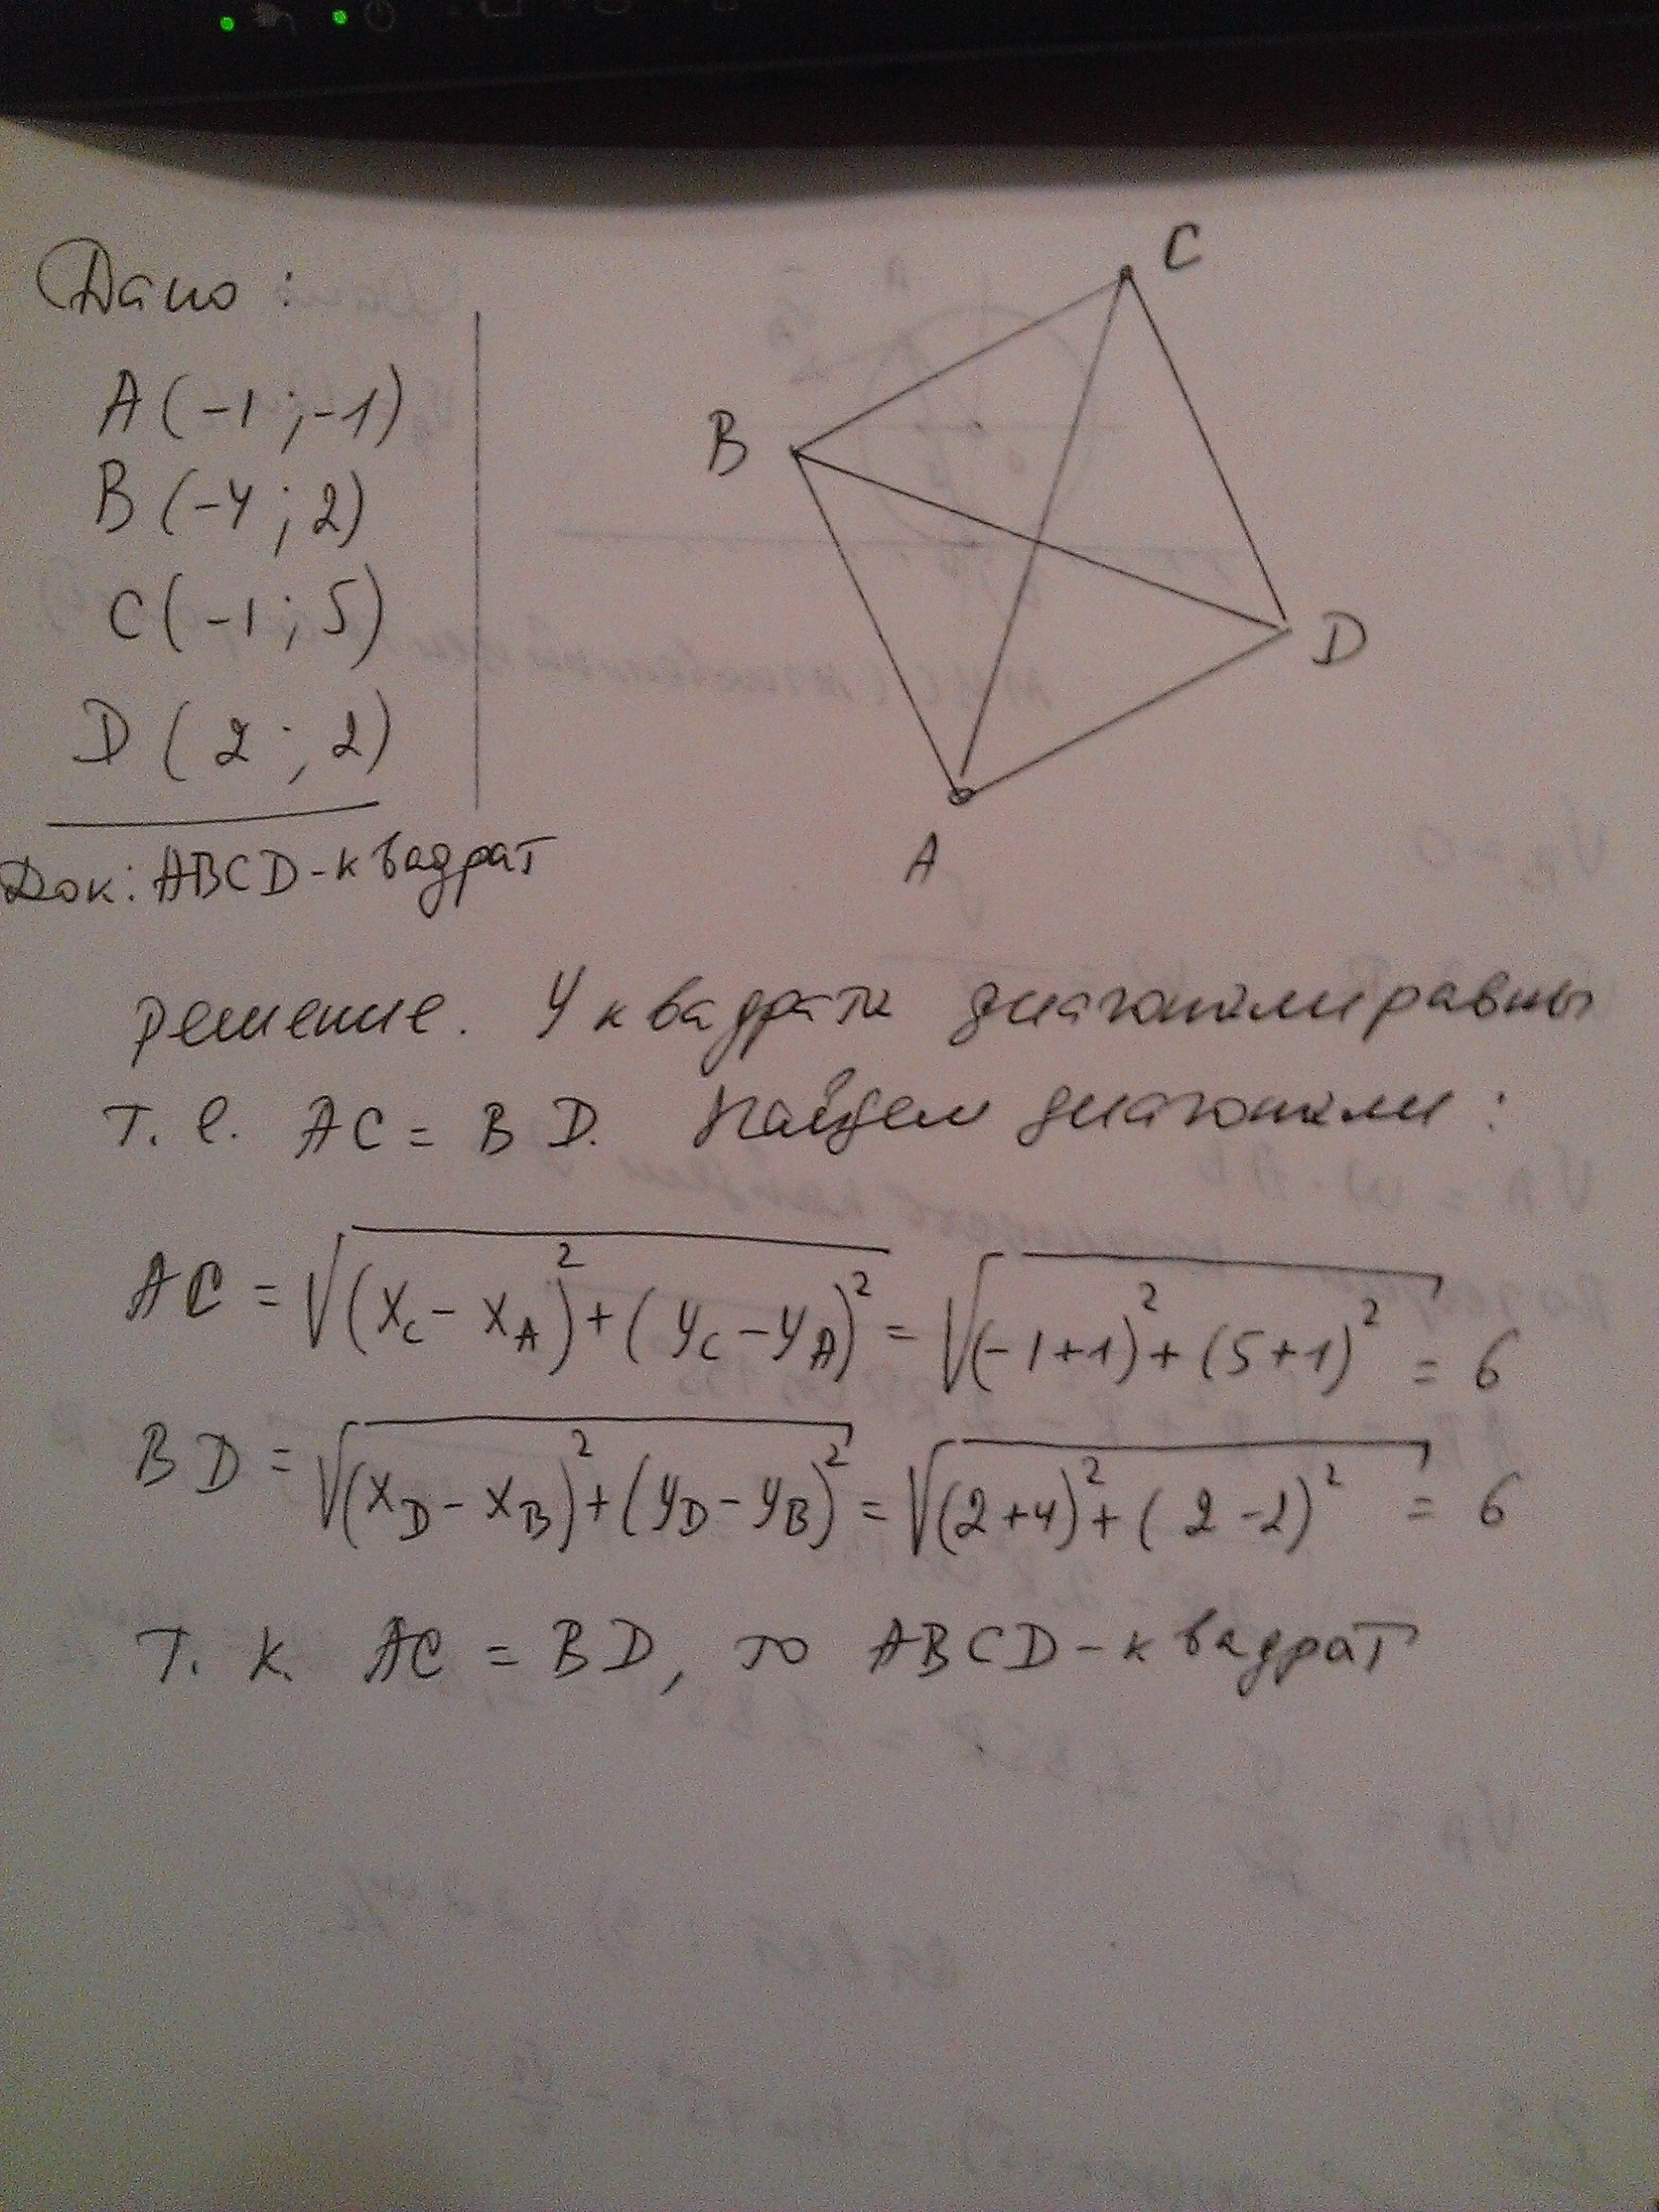 Дано:
A(-1;-1)
B(-4;2)
C(-1;5)
D(2;2)
Док: ABCD-квадрат
C
B
D
A
решение. У квадрата диагонали равны
т. е. AC = BD. Найдем диагонали:
AC = √((x_C - x_A)² + (y_C - y_A)²) = √((-1+1)² + (5+1)²) = 6
BD = √((x_D - x_B)² + (y_D - y_B)²) = √((2+4)² + (2-2)²) = 6
т. к. AC = BD, то ABCD-квадрат